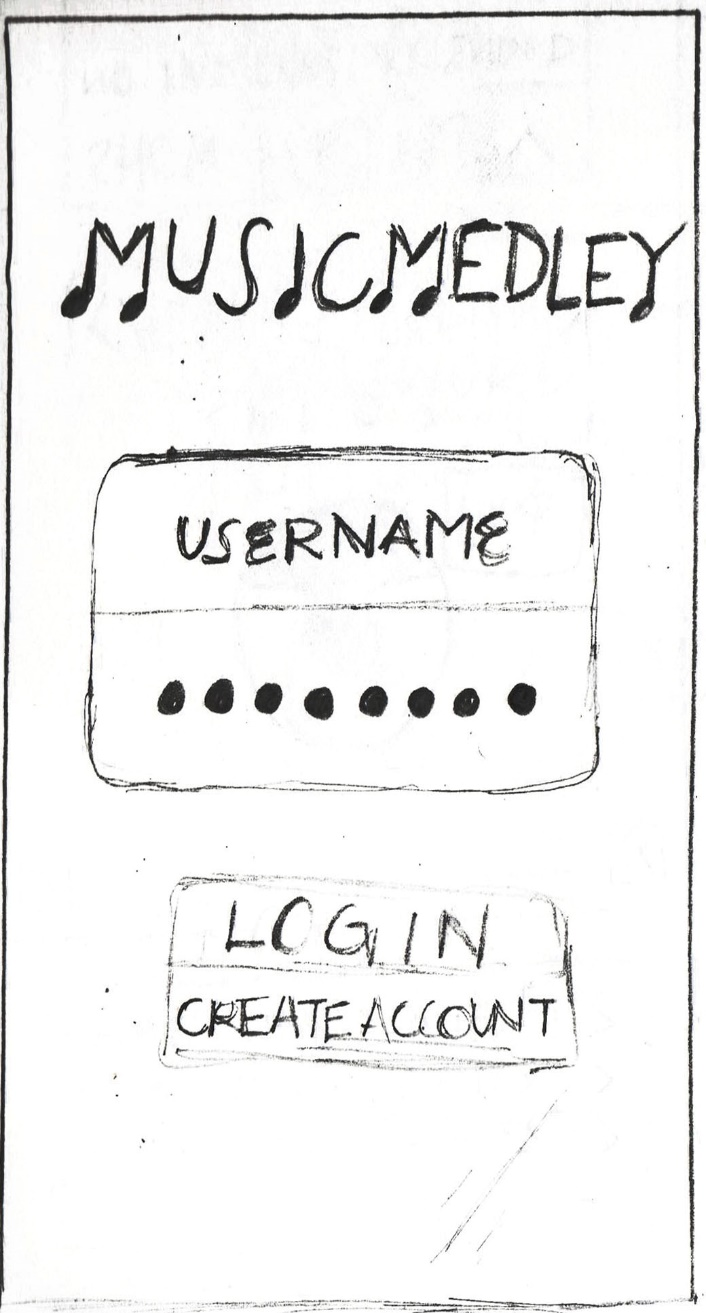 MUSICMEDLEY
USERNAME
••••••••
LOGIN
CREATE ACCOUNT